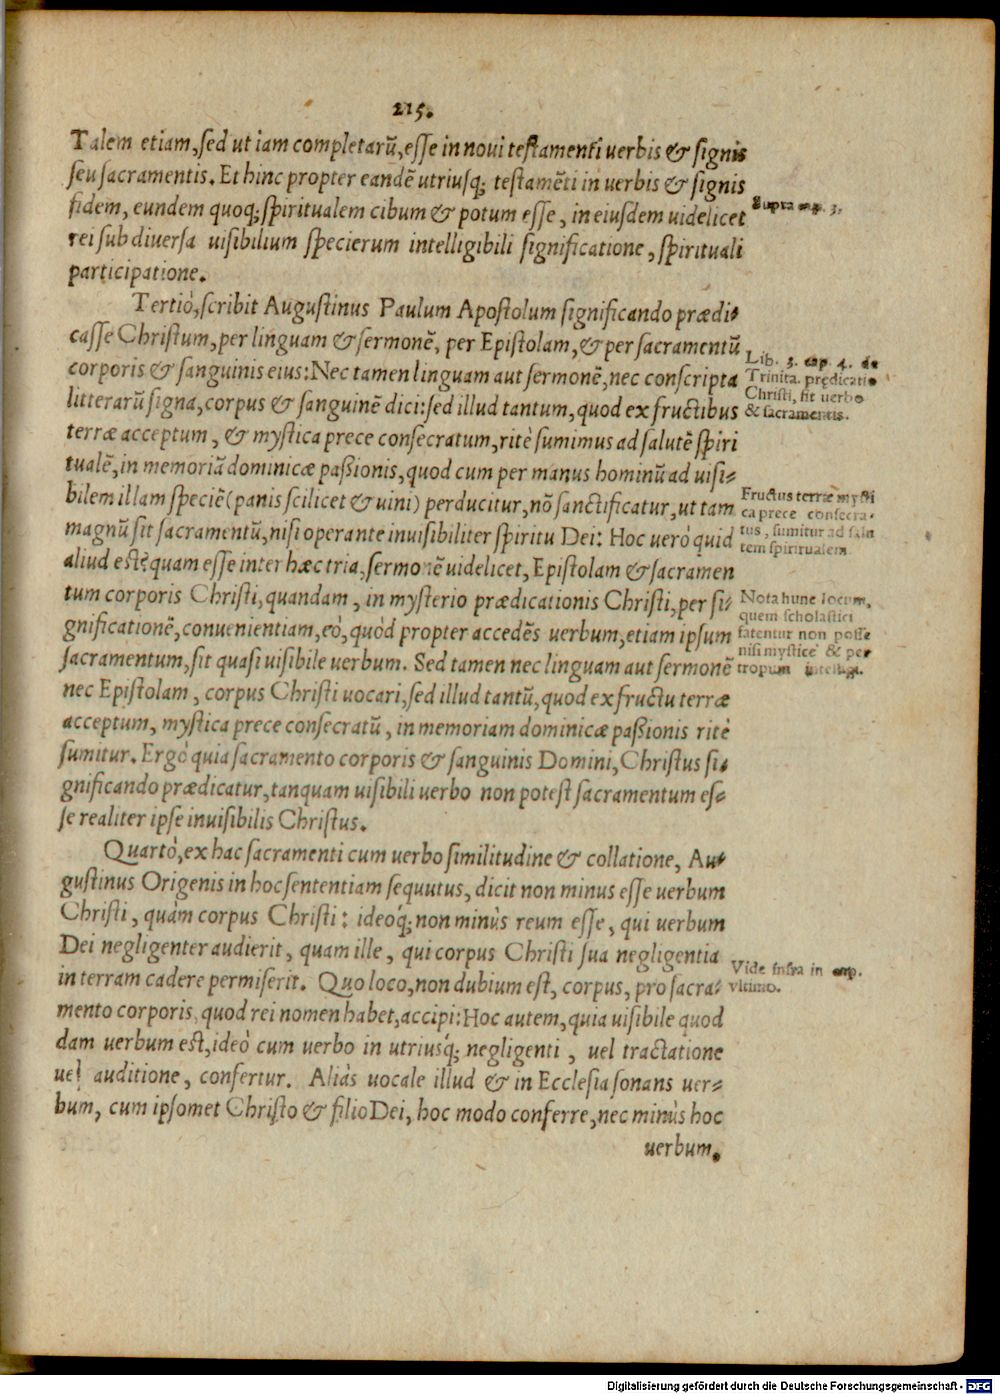 215.
Talem etiam, sed ut iam completarũ, esse in noui testamenti uerbis & signis
seu sacramentis. Et hinc propter eandẽ utriusq; testamẽti in uerbis & signis
fidem, eundem quoq; spiritualem cibum & potum esse, in eiusdem uidelicet
rei sub diuersa uisibilium specierum intelligibili significatione, spirituali
participatione.
Supra cap. 3.
Tertiò, scribit Augustinus Paulum Apostolum significando prædi-
casse Christum, per linguam & sermonẽ, per Epistolam, & per sacramentũ
corporis & sanguinis eius: Nec tamen linguam aut sermonẽ, nec conscripta
litterarũ signa, corpus & sanguinẽ dici: sed illud tantum, quod ex fructibus
terræ acceptum, & mystica prece consecratum, ritè sumimus ad salutẽ spiri
tualẽ, in memoriã dominicæ passionis, quod cum per manus hominũ ad uisi-
bilem illam speciẽ (panis scilicet & uini) perducitur, nõ sanctificatur, ut tam
magnũ sit sacramentũ, nisi operante inuisibiliter spiritu Dei: Hoc uerò quid
aliud est? quam esse inter hæc tria, sermonẽ uidelicet, Epistolam & sacramen
tum corporis Christi, quandam, in mysterio prædicationis Christi, per si-
gnificationẽ, conuenientiam, eò, quòd propter accedẽs uerbum, etiam ipsum
sacramentum, sit quasi uisibile uerbum. Sed tamen nec linguam aut sermonẽ
nec Epistolam, corpus Christi uocari, sed illud tantũ, quod ex fructu terræ
acceptum, mystica prece consecratũ, in memoriam dominicæ passionis ritè
sumitur. Ergò quia sacramento corporis & sanguinis Domini, Christus si-
gnificando prædicatur, tanquam uisibili uerbo non potest sacramentum es-
se realiter ipse inuisibilis Christus.
Lib. 3. cap. 4. de
Trinita. prędicatio
Christi, fit verbo
& sacramentis.
Fructus terræ mysti
ca prece consecra-
tus, sumitur ad salu
tem spiritualem.
Nota hunc locum,
quem scholastici
fatentur non posse
nisi mysticè & per
tropum intelligi.
Quartò, ex hac sacramenti cum uerbo similitudine & collatione, Au-
gustinus Origenis in hoc sententiam sequutus, dicit non minus esse uerbum
Christi, quàm corpus Christi: ideoq́; non minùs reum esse, qui uerbum
Dei negligenter audierit, quam ille, qui corpus Christi sua negligentia
in terram cadere permiserit. Quo loco, non dubium est, corpus, pro sacra-
mento corporis, quod rei nomen habet, accipi: Hoc autem, quia uisibile quod
dam uerbum est, ideò cum uerbo in utriusq́; negligenti, uel tractatione
uel auditione, confertur. Aliàs uocale illud & in Ecclesia sonans uer-
bum, cum ipsomet Christo & filio Dei, hoc modo conferre, nec minùs hoc
Vide infra in cap.
vltimo.
uerbum.
Digitalisierung gefördert durch die Deutsche Forschungsgemeinschaft - DFG